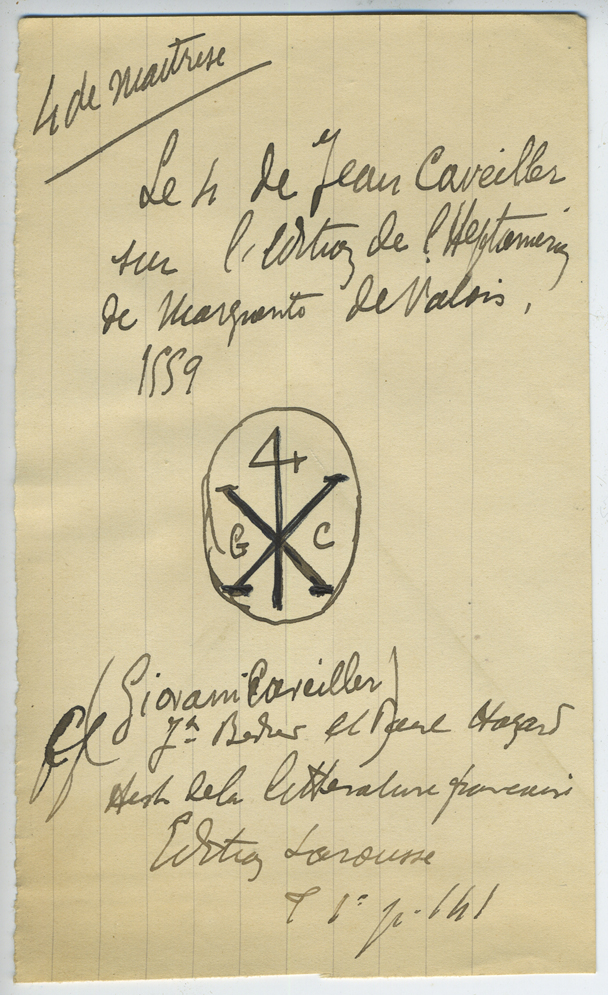 4 de Maitrise
Le 4 de Jean Caveiller
sur l'Edition de l'Heptameron
de Marguerite de Valois,
1559
4
G C
(Giovanni Caveiller)
Cf Jh Bedier et Paul Hazard
Hist de la littérature francaise
Edition Larousse
T 1er p. 141